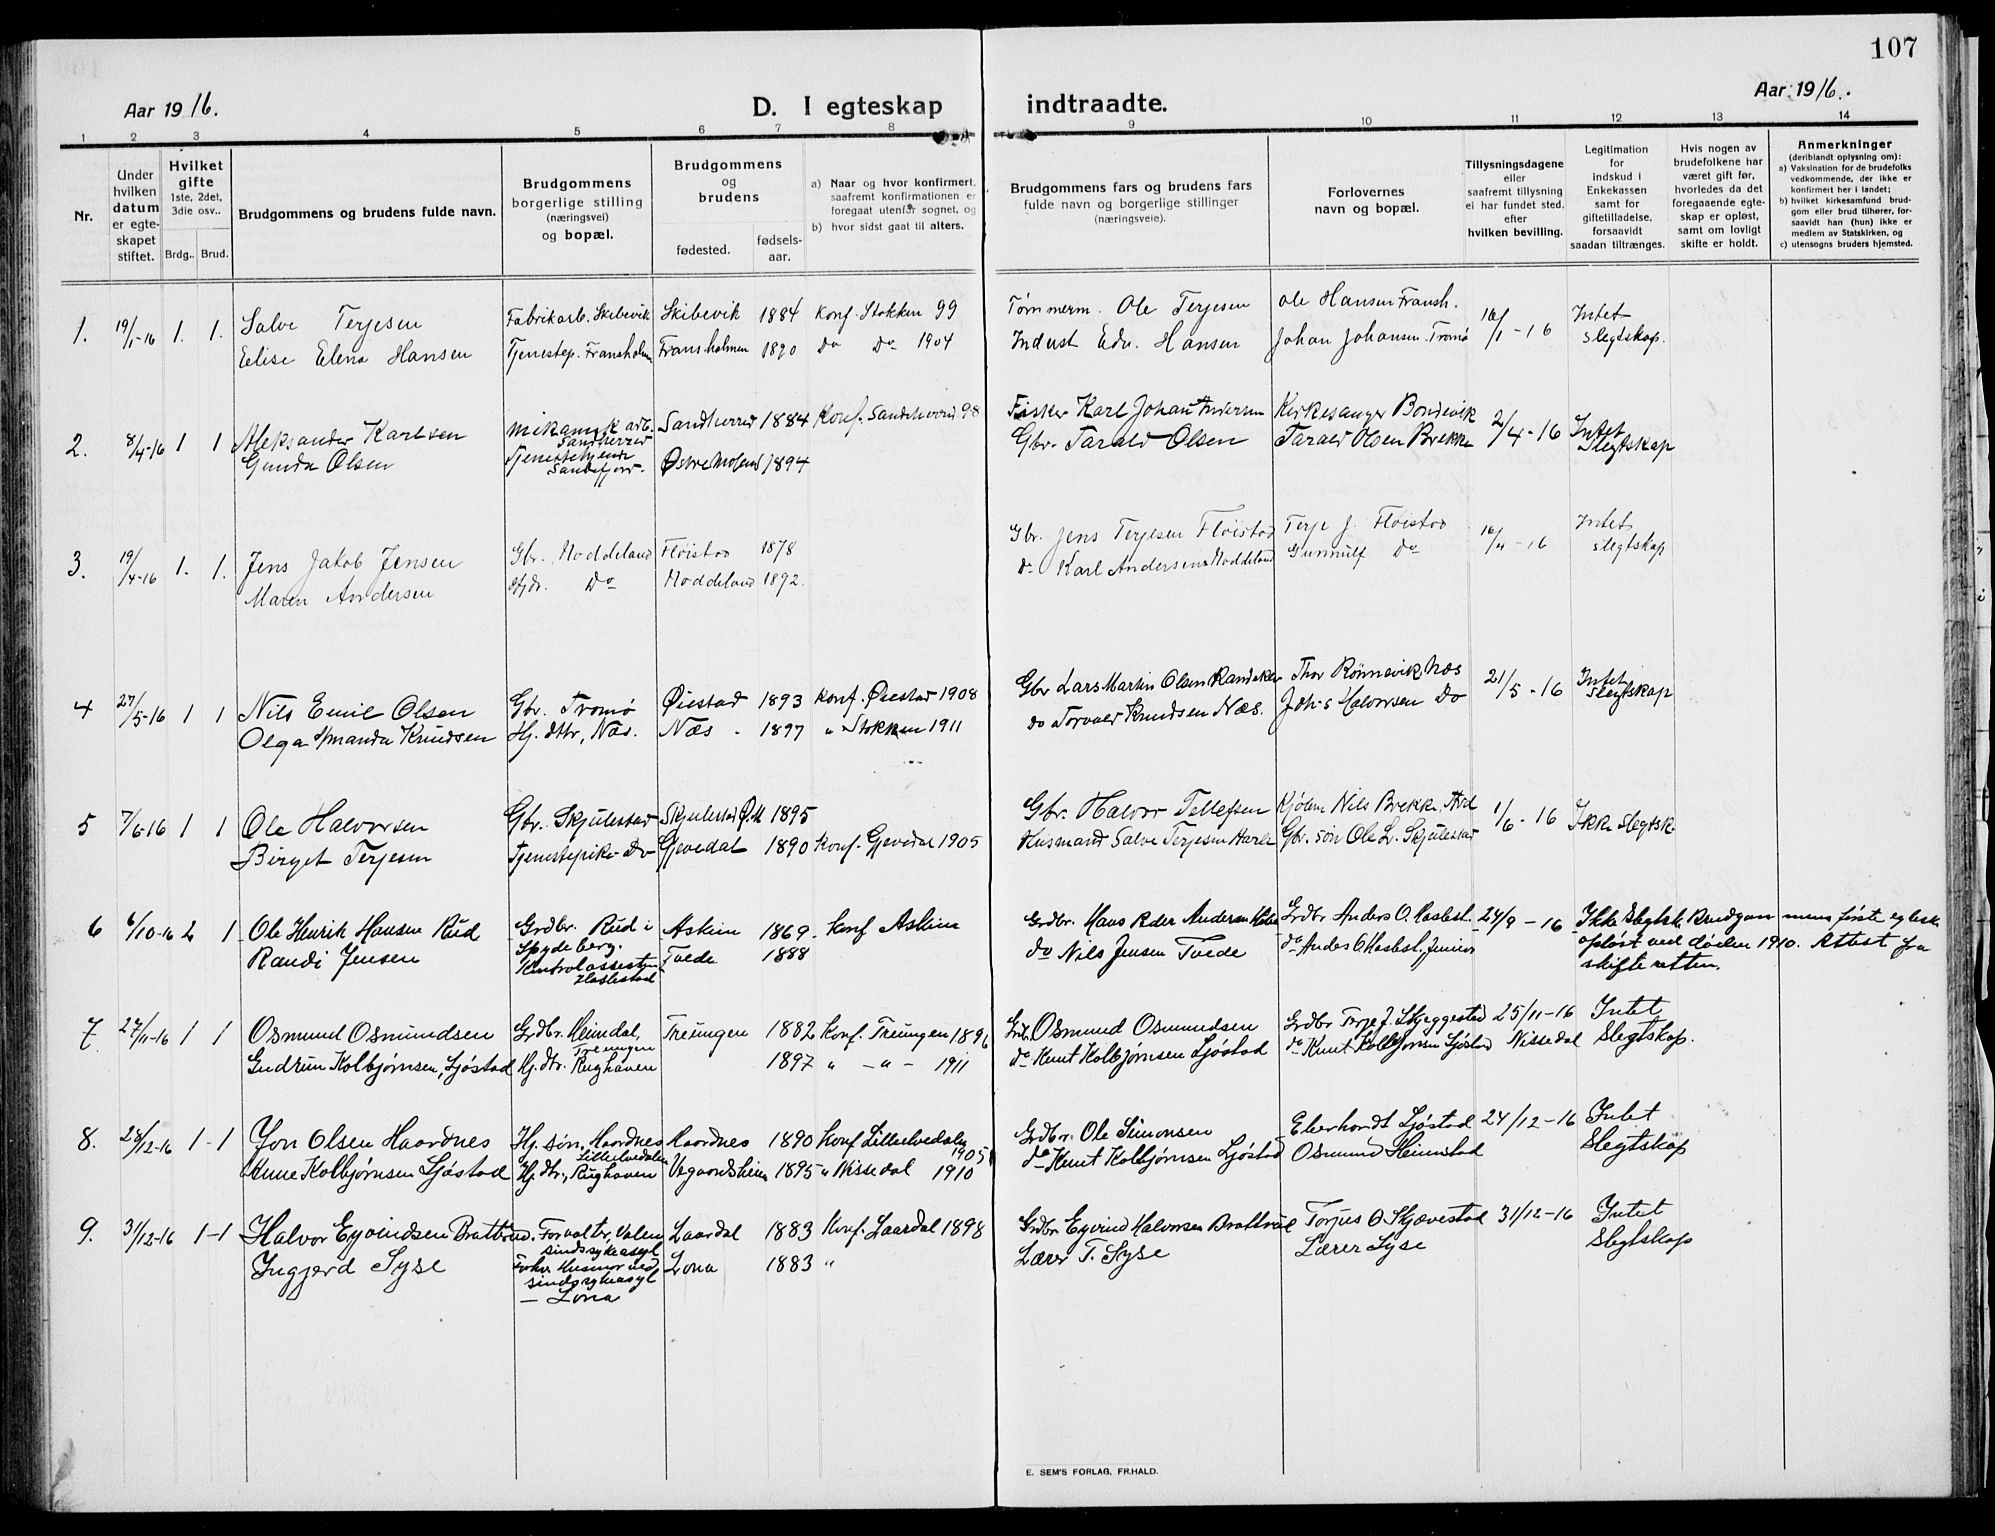 107
Aar 1916.
D. I egteskap indtraadte.
Aar 1916.
1 2 3 4 5 6 7 8 9 10 11 12 13 14
Nr.
Under hvilken datum er egteskapet stiftet.
Hvilket gifte 1ste, 2det, 3die osv..
Brdg.. Brud.
Brudgommens og brudens fulde navn.
Brudgommens borgerlige stilling (næringsvei) og bopæl.
Brudgommens og brudens
fødested. fødsels-aar.
a) Naar og hvor konfirmert, saafremt konfirmationen er foregaat utenfor sognet, og
b) hvor sidst gaat til alters.
Brudgommens fars og brudens fars fulde navn og borgerlige stillinger (næringsveie).
Forlovernes navn og bopæl.
Tillysningsdagene eller saafremt tillysning ei har fundet sted, efter hvilken bevilling.
Legitimation for indskud i Enkekassen samt for giftetilladelse, forsaavidt saadan tiltrænges.
Hvis nogen av brudefolkene har været gift før, hvorledes da det foregaaende egteskap er opløst, samt om lovligt skifte er holdt.
Anmerkninger (deriblandt oplysning om):
a) Vaksination for de brudefolks vedkommende, der ikke er konfirmert her i landet;
b) hvilket kirkesamfund brudgom eller brud tilhører, forsaavidt han (hun) ikke er medlem av Statskirken, og
c) utensogns bruders hjemsted.
1. 19/1-16 1. 1. Salve Terjesen Fabrikarb. Skibevik Skibevik 1884 Konf. Stokken 99 Tømmerm. Ole Terjesen Ole Hansen Fransh. 16/1-16 Intet
Elise Elena Hansen Tjenestep. Fransholm Fransholmen 1890 do Do 1904 Indust Edv. Hansen Johan Johansen Tromø slegtskap.
2. 8/4-16 1 1 Aleksander Karlsen mekanisk arb. Sandherred Sandherred 1884 Konf. Sandeherred 98 Fisker Karl Johan Andersen Kirkesanger Bondevik 2/4-16 Intet
Gunda Olsen Tjenestehjende Sandefjord. Østre 1894 Gbr. Tarald Olsen Tarald Olsen Brekke Slegtskap
3. 19/4-16 1. 1. Jens Jakob Jensen Gbr. Noddeland Fløistad 1878 Gbr. Jens Terjesen Fløistad Terje J. Fløistad 16/4-16 Intet
Maren Andersen Do Noddeland 1892. do Karl Andersen Noddeland Gunnulf Do slegtskap
4 27/5-16 1 1 Nils Emil Olsen Gbr. Tromø Øiestad 1893 Konf. Øiestad 1908 Gbr Lars Martin Olsen Thor Rønnevik, Næs 21/5-16 Intet
Olga Amanda Knudsen Hj. dttr, Næs. Næs. 1897 " Stokken 1911 do Torvald Knudsen Næs. Joh-s Halvorsen Do Slegtskap
5 7/6-16 1 1 Ole Halvorsen Gbr. Skjulestad Skjulestad Ø.M 1895 Gbr. Halvor Tellefsen Nils Brekke, 1/6-16 Ikke Slegtsk
Birget Terjesen Tjenestepike Do Gjevedal 1890 Konf. Gjevedal 1905 Husmand Salve Terjesen Gbr. søn Ole L. Skjulestad
6 6/10-16 2 1 Ole Henrik Hansen Rud Grdbr. Rud i Spydeberg. Askim 1869 Konf Askim Grdbr. Hans Peder Andersen Grdbr Anders O. Haslest. 24/9-16 Ikke Slegtsk Brudgommens første egtesk
Randi Jensen Kontrolassistent Haslestad Tvede 1888 do Nils Jensen Tvede do Andes O Haslest, Junior opløst ved døden 1910. Attest fra
skifteretten.
7. 27/11-16 1 1 Osmund Osmundsen Grdbr. Heimdal, Treungen Treungen 1882 Konf. Treungen 1896 Grdbr. Osmund Osmundsen Grdbr Terje J. Skjeggestad 25/11-16 Intet
Gudrun Kolbjørnsen, Sjøstad Hj. dtr. Rughaven 1897 " - " - 1911 do Knut Kolbjørnsen Sjøstad do Knut Kolbjørnsen Sjøstad Nissedal Slegtskap.
8. 28/12-16 1-1 Jon Olsen Haardnes Hj. søn. Haardnes Haardnes 1890 Konf 1905 Grdbr. Ole Simonsen Eberhardt Sjøstad 24/12-16 Intet
Anne Kolbjørnsen Sjøstad Hj. dtr., Rughaven Vegaardsheien 1895 " Nissedal 1910 do Knut Kolbjørnsen Sjøstad Osmund Heimstad Slegtskap
9. 31/12-16 1-1 Halvor Eyvindsen Forvalter, Valen sindssykeasyl Laardal 1883 Konf. Laardal 1898 Grdbr Eyvind Halvorsen Torjus O Skjævestad 31/12-16 Intet
Ingjerd Syse Husmor ved sindssykeasyl Lona 1883 " Lærer T. Syse Lærer Syse Slegtskap
- Lona
E. SEM'S FORLAG, FR.HALD.